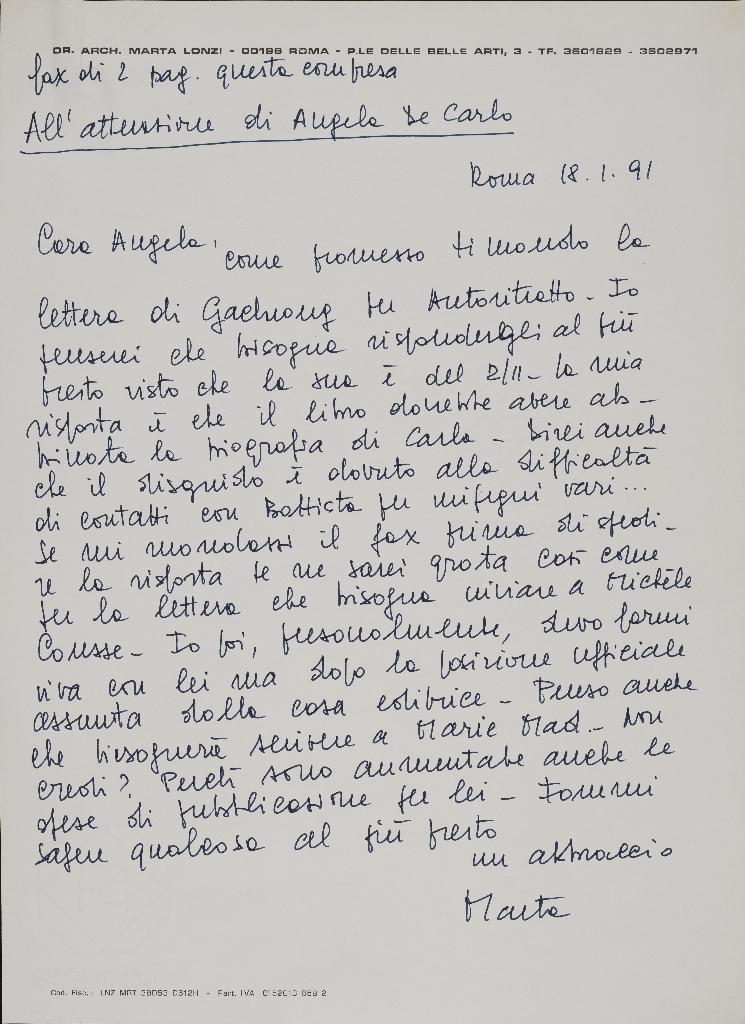 DR. ARCH. MARTA LONZI - 00196 ROMA - P.LE DELLE BELLE ARTI, 3 - TF. 3601829 - 3602971
fax di 2 pag. questa compresa
All'attenzione di Angela De Carlo
Roma 18.1.91
Cara Angela,
come promesso ti mando la
lettera di Gachnang per Autoritratto - Io
penserei che bisogna rispondergli al più
presto visto che la sua è del 2/11 - la mia
risposta è che il libro dovrebbe avere ab-
binata la biografia di Carla - Direi anche
che il disguido è dovuto alla difficoltà
di contatti con Battista per impegni vari...
Se mi mandassi il fax prima di spedi-
re la risposta te ne sarei grata così come
per la lettera che bisogna inviare a Michèle
Causse - Io poi, personalmente, devo farmi
viva con lei ma dopo la posizione ufficiale
assunta dalla casa editrice - Penso anche
che bisognerà scrivere a Marie Mad. - Non
credi? Perché sono aumentate anche le
spese di pubblicazione per lei - Fammi
sapere qualcosa al più presto
un abbraccio
Marta
Cod. Fisc.: LNZ MRT 38D53 D612H - Part. IVA